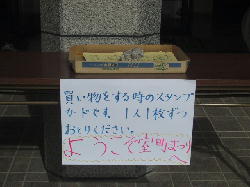 買い物をする時のスタンプ
カードです。1人1枚ずつ
おとりください。
ようこそ室町まつり
へ